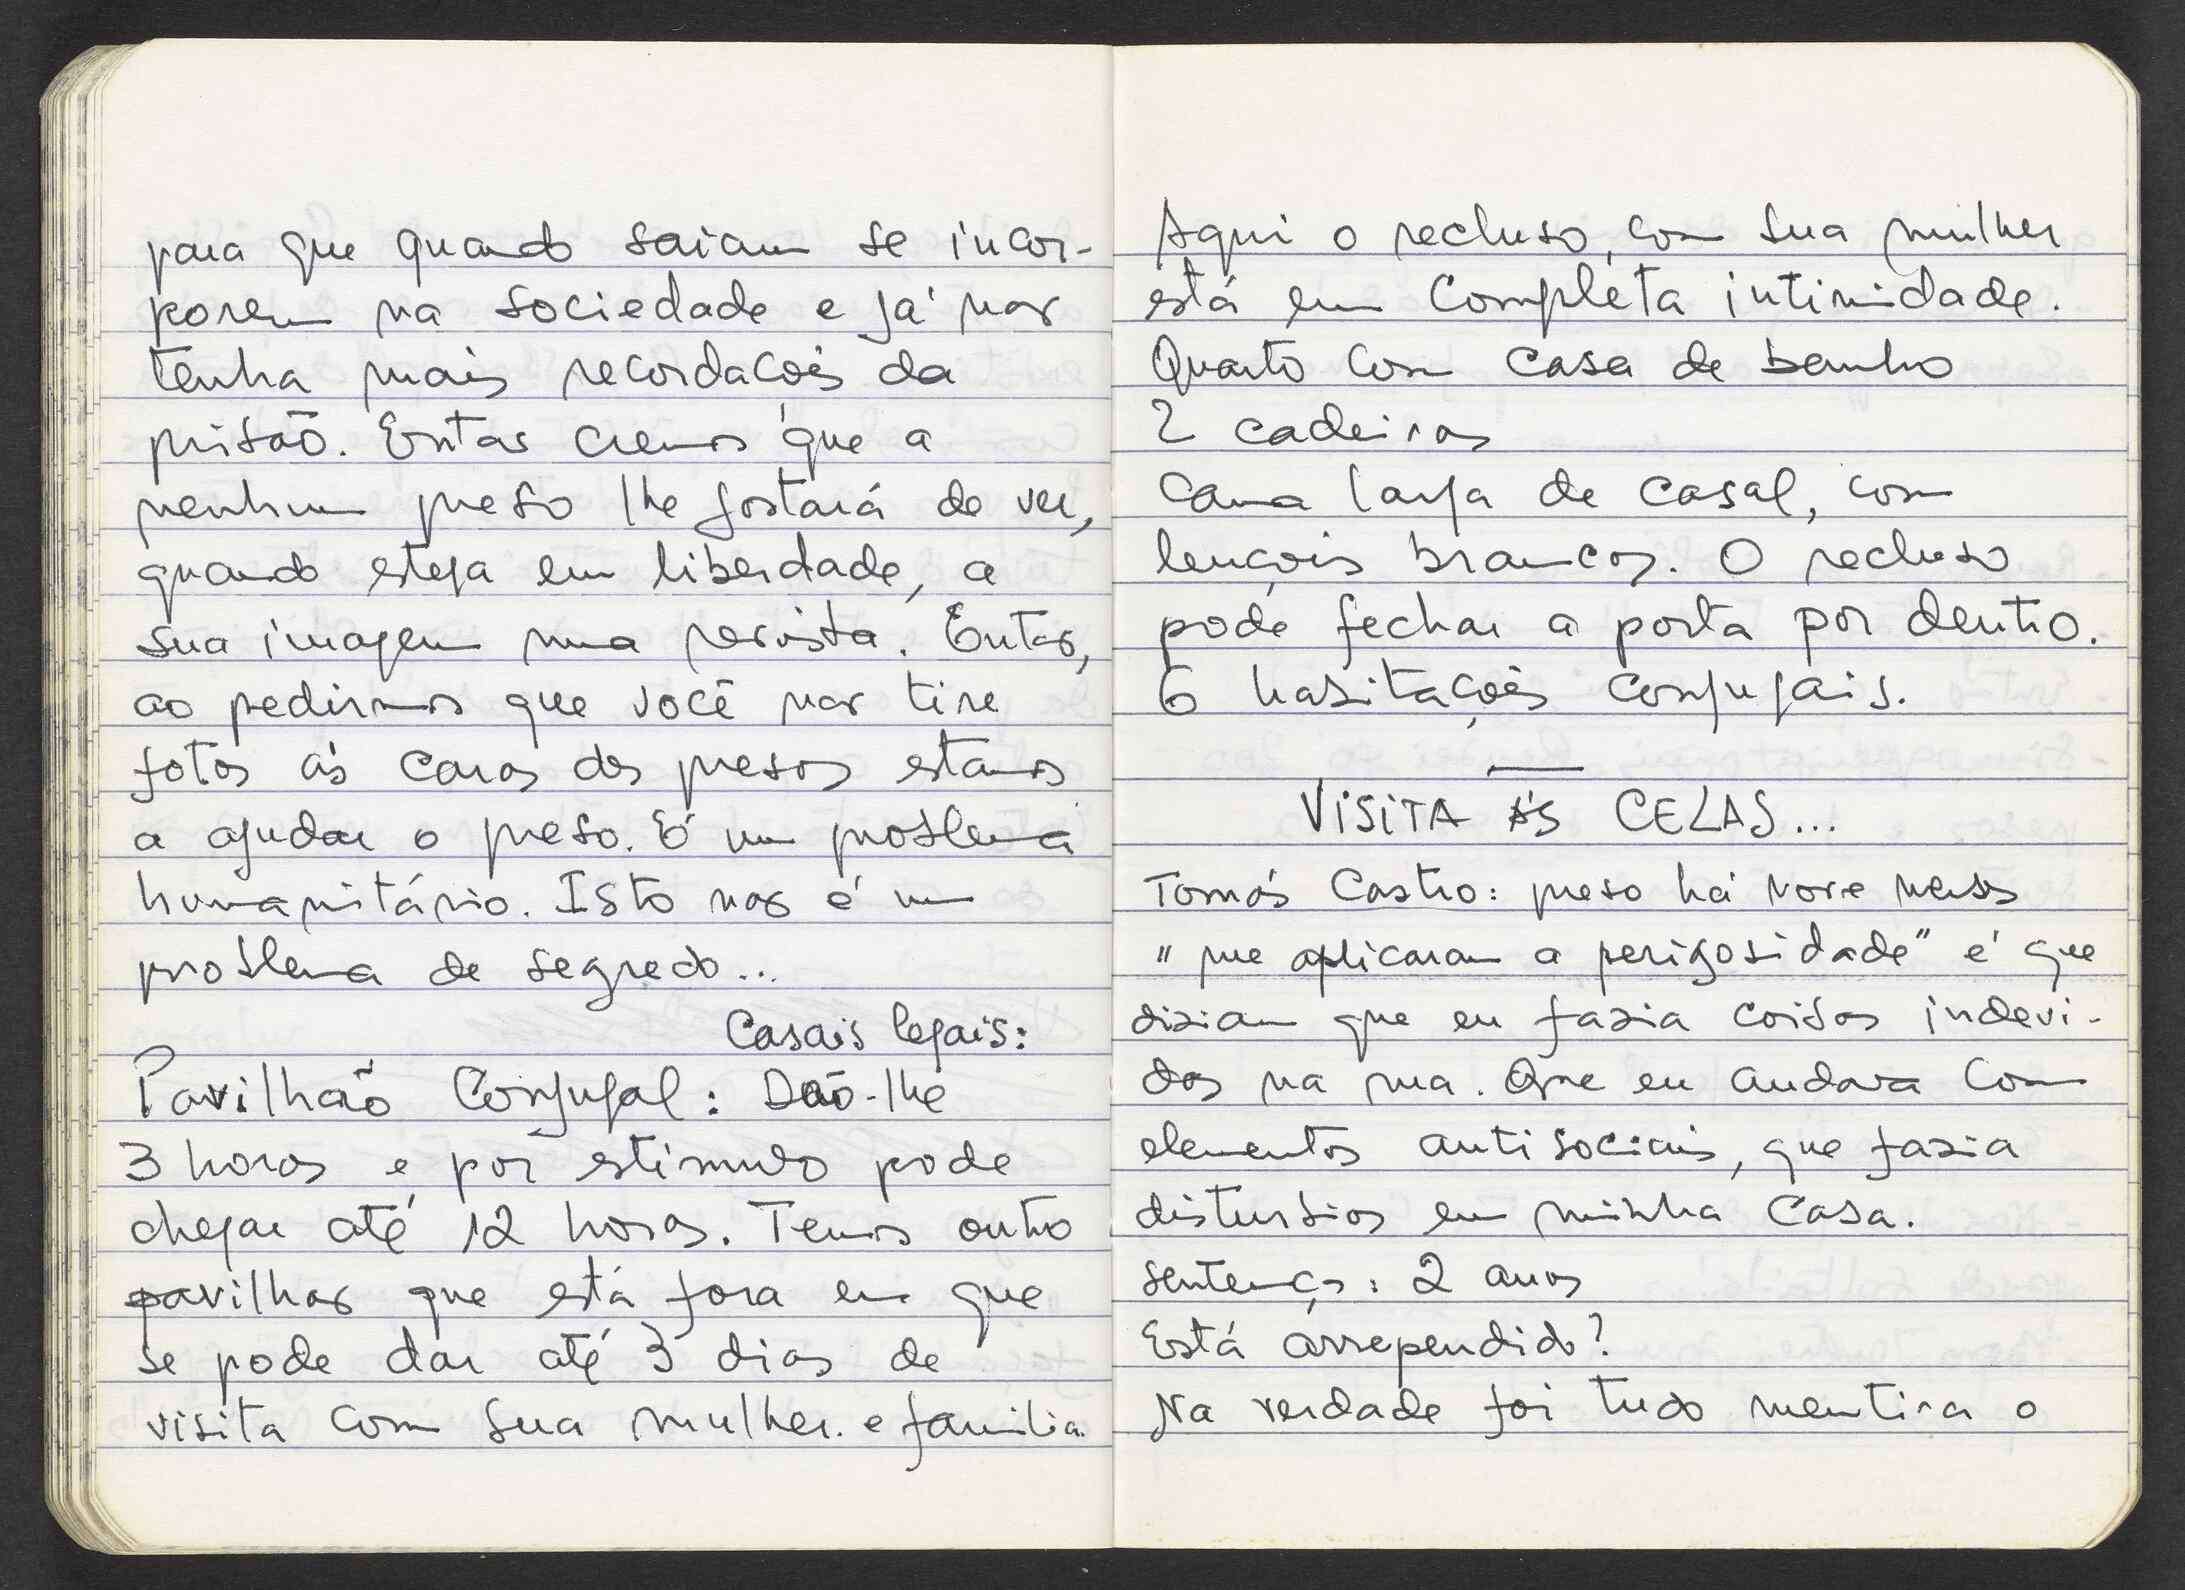 para que quando saiam se incor-
porem na sociedade e já não
tenha mais recordações da
prisão. Então cremos que a
nenhum preso lhe gostará de ver,
quando esteja em liberdade, a
sua imagem numa revista. Então,
ao pedirmos que você não tire
fotos às caras dos presos estamos
a ajudar o preso. É um problema
humanitário. Isto não é um
problema de segredo...
Casais legais:
Pavilhão Conjugal: Dão-lhe
3 horas e por estimulo pode
chegar até 12 horas. Temos outro
pavilhão que está fora em que
se pode dar até 3 dias de
visita com sua mulher. e familia.
Aqui o recluso, com sua mulher
está em completa intimidade.
Quarto com casa de banho
2 cadeiras
Cama larga de casal, com
lençois brancos. O recluso
pode fechar a porta por dentro.
6 habitações conjugais.
VISITA ÀS CELAS...
Tomás Castro: preso há nove meses
"me aplicaram a perigosidade" é que
diziam que eu fazia coisas indevi-
das na rua. Que eu andava com
elementos antisociais, que fazia
disturbios em minha casa.
sentença: 2 anos
Está arrependido?
Na verdade foi tudo mentira o